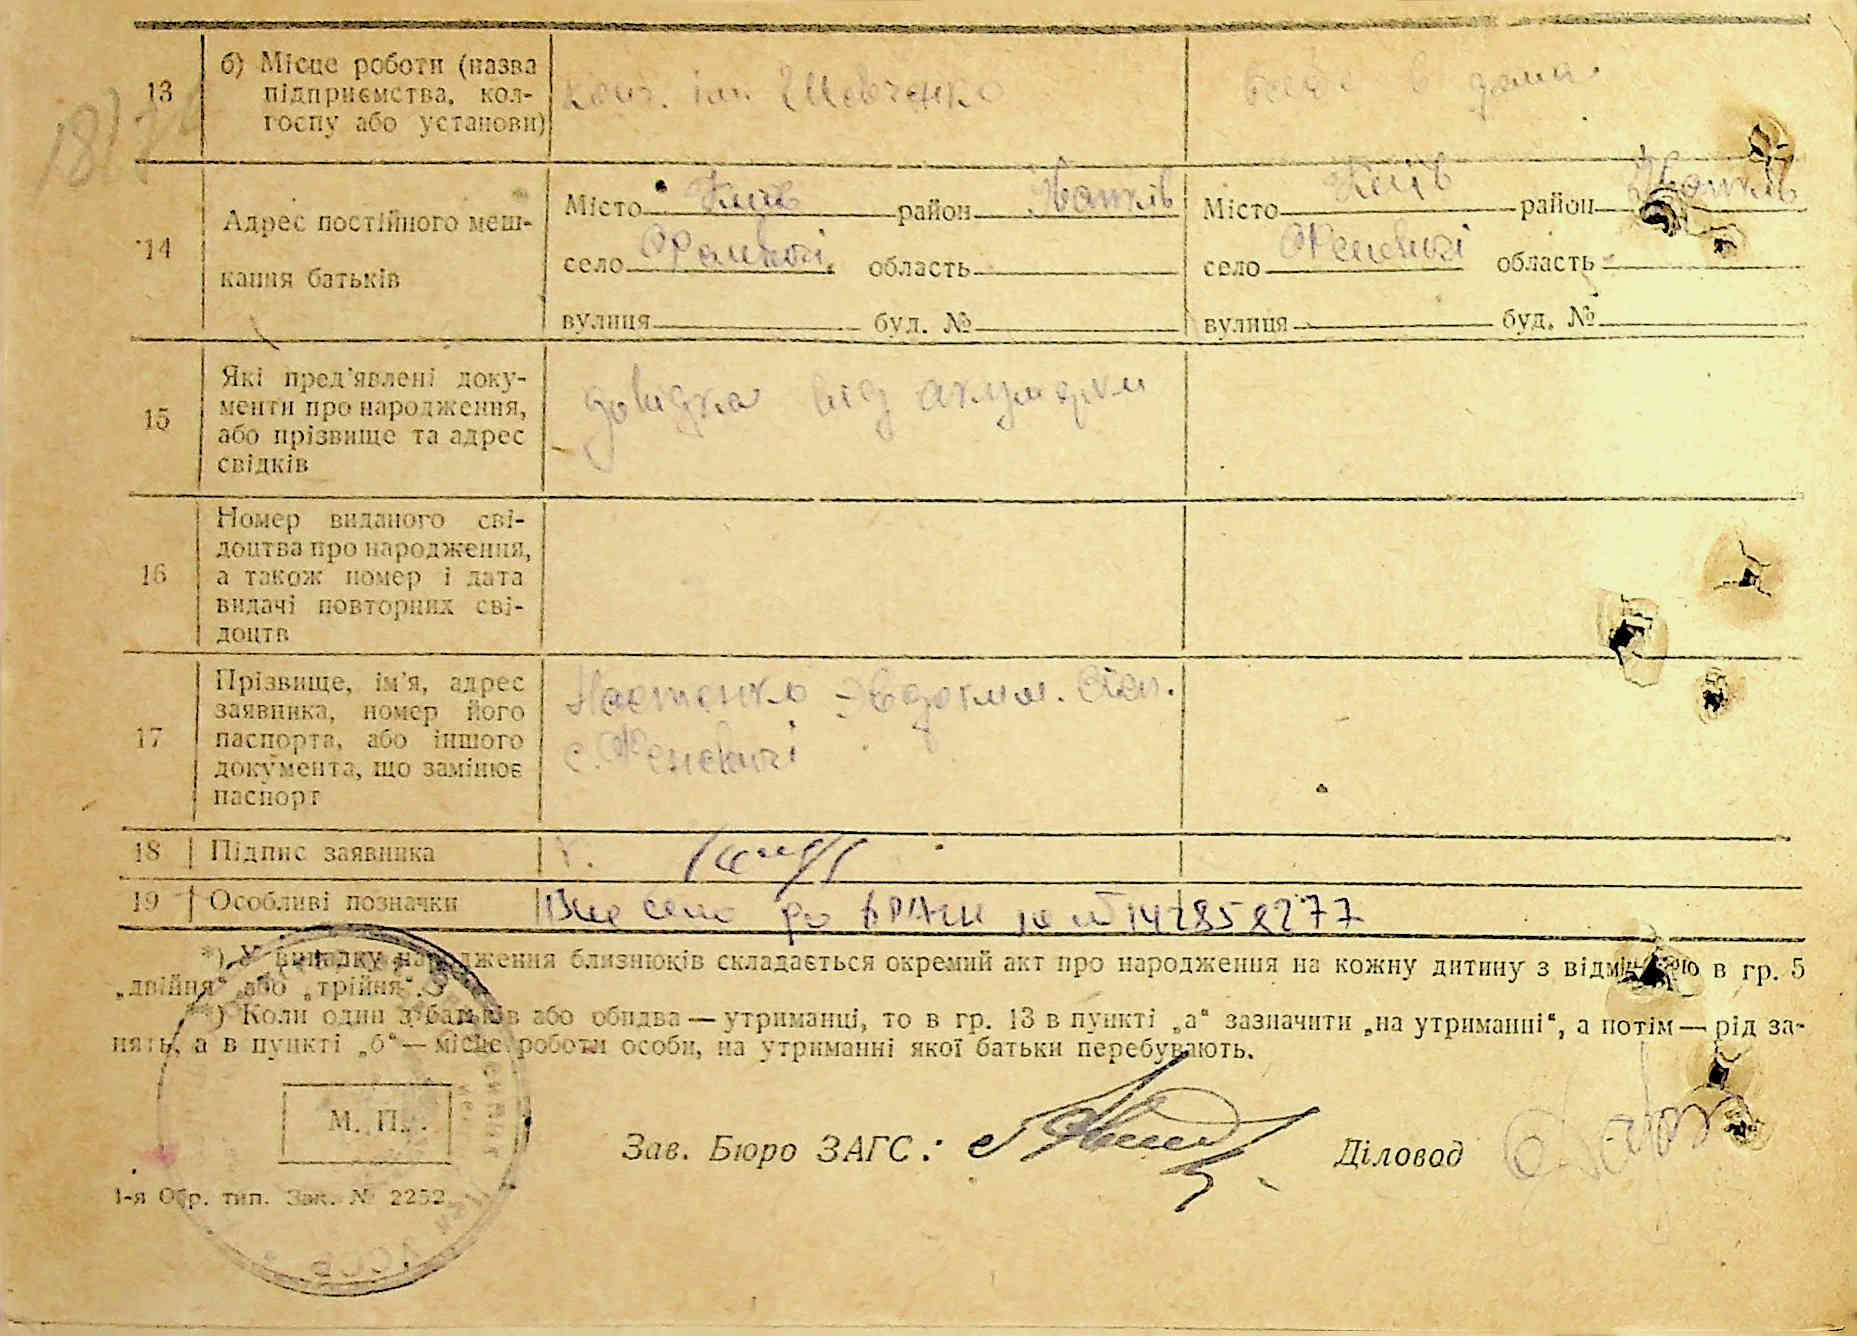 13 б) Місце роботи (назва
підприємства, кол-
госпу або установи)
ім. Шевченко
в дома.
14 Адрес постійного меш-
кання батьків
Місто Київ район Іванків
село Феневичі область
вулиця буд. №
Місто Київ район Іванків
село Феневичі область
вулиця буд. №
15 Які пред'явлені доку-
менти про народження,
або прізвище та адрес
свідків
довідка від акушерки
16 Номер виданого сві-
доцтва про народження,
а також номер і дата
видачі повторних сві-
доцтв
17 Прізвище, ім'я, адрес
заявника, номер його
паспорта, або іншого
документа, що замінює
паспорт
с. Феневичі
18 Підпис заявника
19 Особливі позначки
Внесено до ДРАЦС
*) У випадку народження близнюків складається окремий акт про народження на кожну дитину з відміткою в гр. 5
„двійня" або „трійня".
**) Коли один з батьків або обидва — утриманці, то в гр. 13 в пункті „а" зазначити „на утриманні", а потім — рід за-
нять, а в пункті „б" — місце роботи особи, на утриманні якої батьки перебувають.
М. П.
Зав. Бюро ЗАГС:
Діловод
1-я Обр. тип. Зак. № 2252